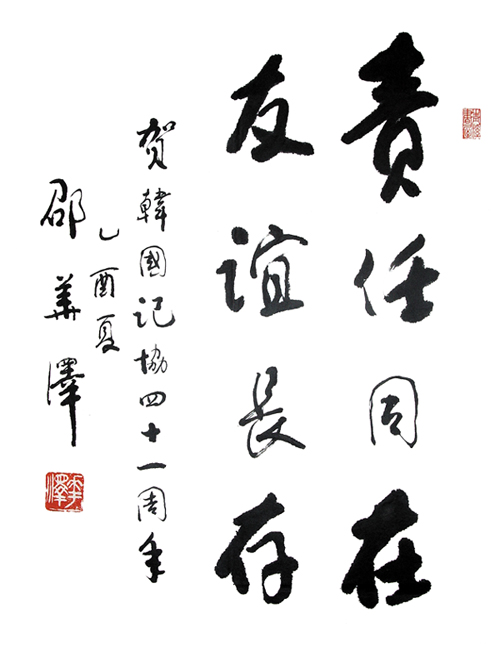 責任同在
友誼長存
賀韓國記協四十一周年
乙酉夏
邵華澤
華澤